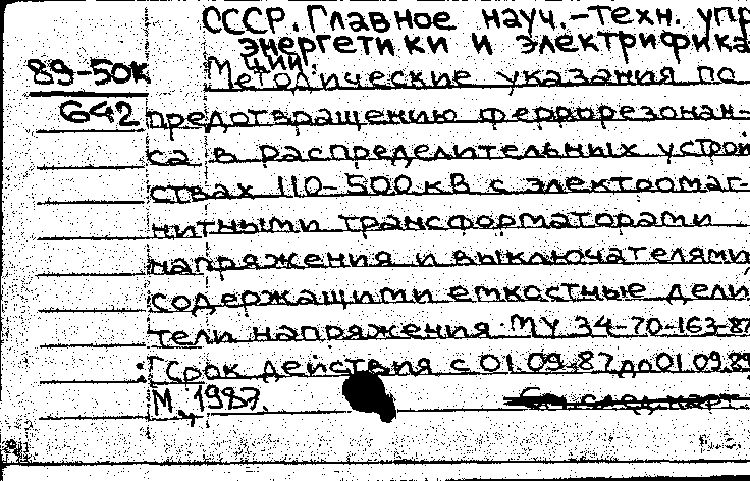 СССР. Главное науч.-техн. упр
энергетики и электрифика
ции.
89-50к
642
Методические указания по
предотвращению феррорезонан-
са в распределительных устрой
ствах 110-500 кВ с электромаг-
нитными трансформаторами
напряжения и выключателями
содержащими емкостные дели
тели напряжения. МУ 34-70-163-87
[Срок действия с 01.09.87 до 01.09.89
М., 1987.
См. след. карт.